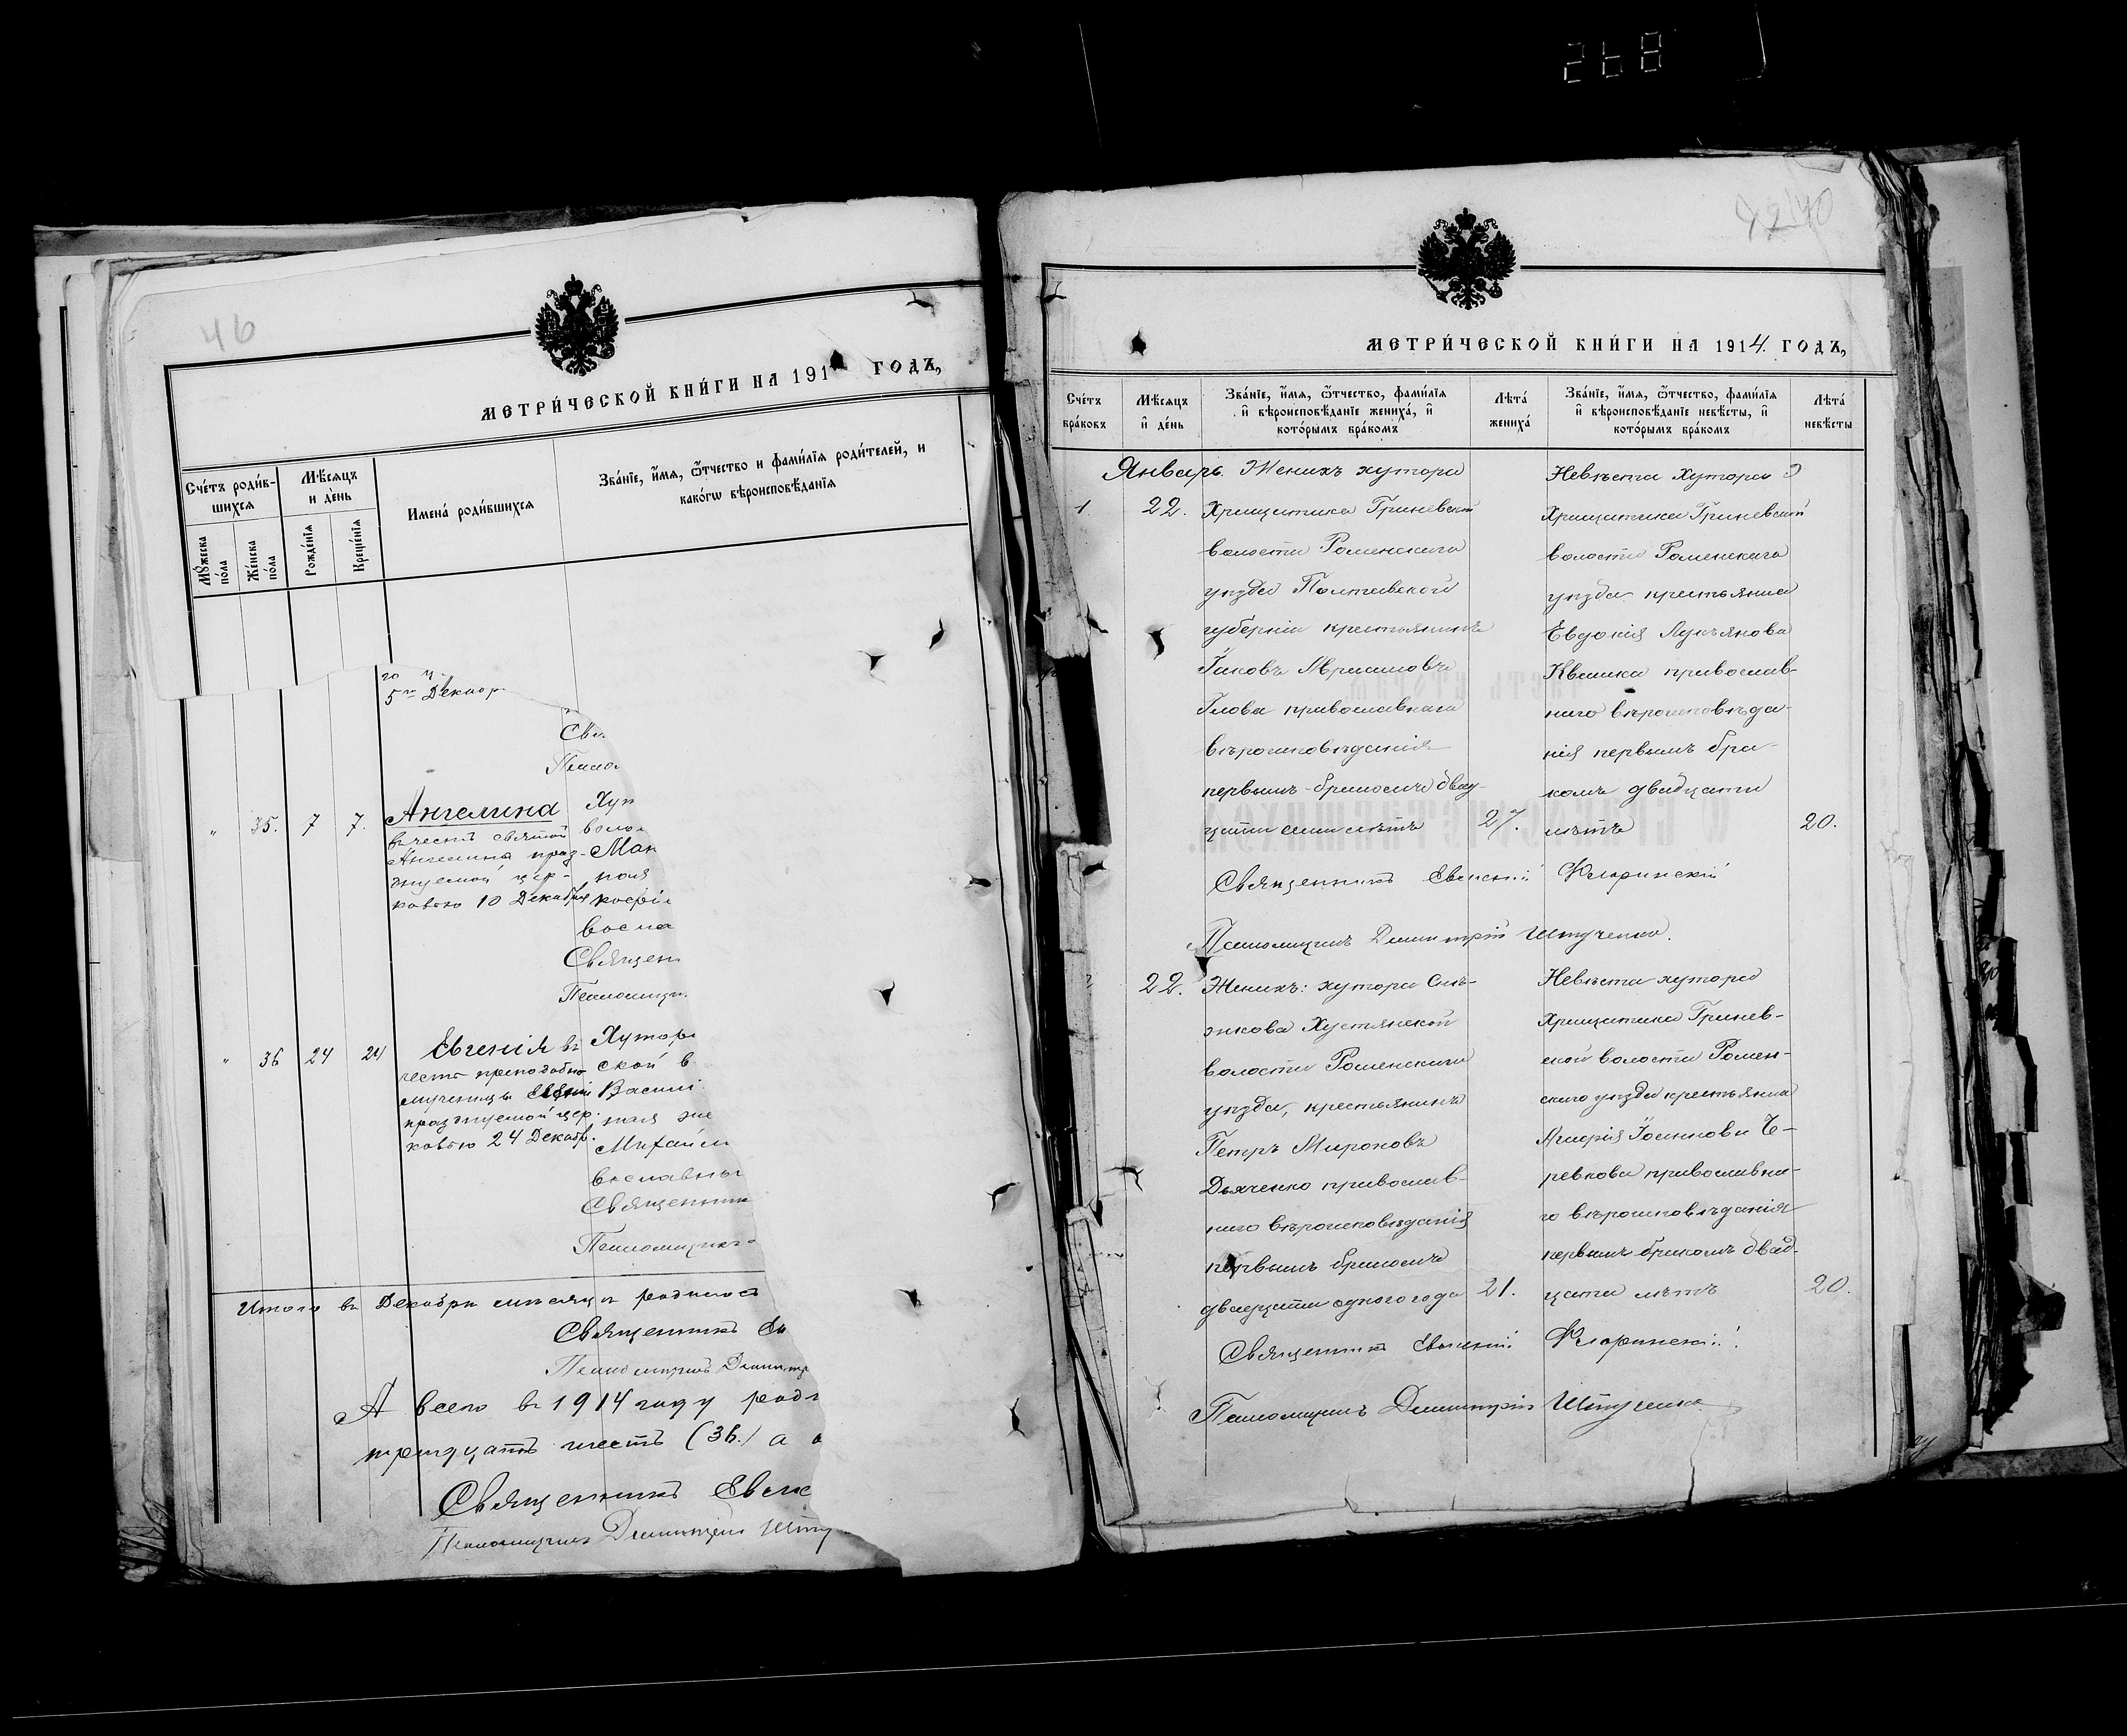 268
46
МЕТРИ́ЧЕСКОЙ КНИ́ГИ НА 191 ГОДЪ,
Сче́тъ роди́в-
шихся
Мѣ́сяцъ
и де́нь
Имена́ роди́вшихся
Зва́нїе, и́мя, ѻ҆́тчество и фами́лїя роди́телей, и
како́гѡ вѣроисповѣ́данїя
Мꙋ́жеска
по́ла
Же́нска
по́ла
Рожде́нїя
Креще́нїя
го ц
5го Декабр
Свя
Псало
" 35. 7 7. Ангелина Хут
въ честь святой воло
Ангелины празд- Мак
нуемой цер- ная
ковью 10 Декабря
восла
Священ
Псаломщи
" 36 24 24 Евгенія въ Хутор
честь преподобно ской в
мученицы Евгеніи Васили
празднуемой цер- ная же
ковью 24 Декабр. Михаил
вославны
Священник
Псаломщикъ
Итого въ Декабрѣ мѣсяцѣ родилось
Священникъ Ев
Псаломщикъ Димитр
А всего въ 1914 году роди
тридцать шесть (36.) а
Священникъ Евге
Псаломщикъ Димитрій Шту
МЕТРИ́ЧЕСКОЙ КНИ́ГИ НА 1914. ГОДЪ,
Сче́тъ
бра́ковъ
Мѣ́сяцъ
и҆ де́нь
Зва́нїе, и҆́мя, ѻ҆́тчество, фами́лїя
и҆ вѣроисповѣ́данїе жениха́, и҆
кото́рымъ бра́комъ
Лѣта́
жениха́
Зва́нїе, и҆́мя, ѻ҆́тчество, фами́лїя
и҆ вѣроисповѣ́данїе невѣ́сты, и҆
кото́рымъ бра́комъ
Лѣта́
невѣ́сты
Январь. Женихъ хутора
1. 22. Хрищатика Гриневской
волости Роменскаго
уѣзда Полтавской
губерніи крестьянинъ
Іаковъ Аврамовъ
Глова православнаго
вѣроисповѣданія
первымъ бракомъ двад-
цати семи лѣтъ 27.
Невѣста Хутора
Хрищатика Гриневской
волости Роменскаго
уѣзда крестьянка
Евдокія Лукьянова
Квашка православ-
наго вѣроисповѣда-
нія первымъ бра-
комъ двадцати
лѣтъ 20.
Священникъ Евгеній Флоринскій
Псаломщикъ Димитрій Штученко.
22. Женихъ: хутора
Хустянской
волости Роменскаго
уѣзда, крестьянинъ
Петръ Мироновъ
Дьяченко православ-
наго вѣроисповѣданія
первымъ бракомъ
двадцати одного года 21.
Невѣста хутора
Хрищатика Гринев-
ской волости Ромен-
скаго уѣзда крестьянка
Іоаннова Че-
ревкова православна-
го вѣроисповѣданія
первымъ бракомъ двад-
цати лѣтъ 20.
Священникъ Евгеній Флоринскій.
Псаломщикъ Димитрій Штученко